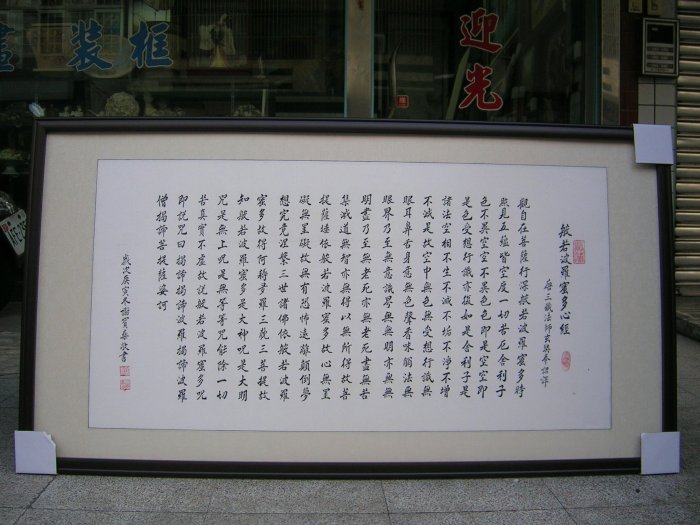 畫裝框
迎光
般若波羅蜜多心經
唐三藏法師玄奘奉詔譯
觀自在菩薩行深般若波羅蜜多時
照見五蘊皆空度一切苦厄舍利子
色不異空空不異色色即是空空即
是色受想行識亦復如是舍利子是
諸法空相不生不滅不垢不淨不增
不減是故空中無色無受想行識無
眼耳鼻舌身意無色聲香味觸法無
眼界乃至無意識界無無明亦無無
明盡乃至無老死亦無老死盡無苦
集滅道無智亦無得以無所得故菩
提薩埵依般若波羅蜜多故心無罣
礙無罣礙故無有恐怖遠離顛倒夢
想究竟涅槃三世諸佛依般若波羅
蜜多故得阿耨多羅三藐三菩提故
知般若波羅蜜多是大神咒是大明
咒是無上咒是無等等咒能除一切
苦真實不虛故說般若波羅蜜多咒
即說咒曰揭諦揭諦波羅揭諦波羅
僧揭諦菩提薩婆訶
歲次庚寅冬謝書